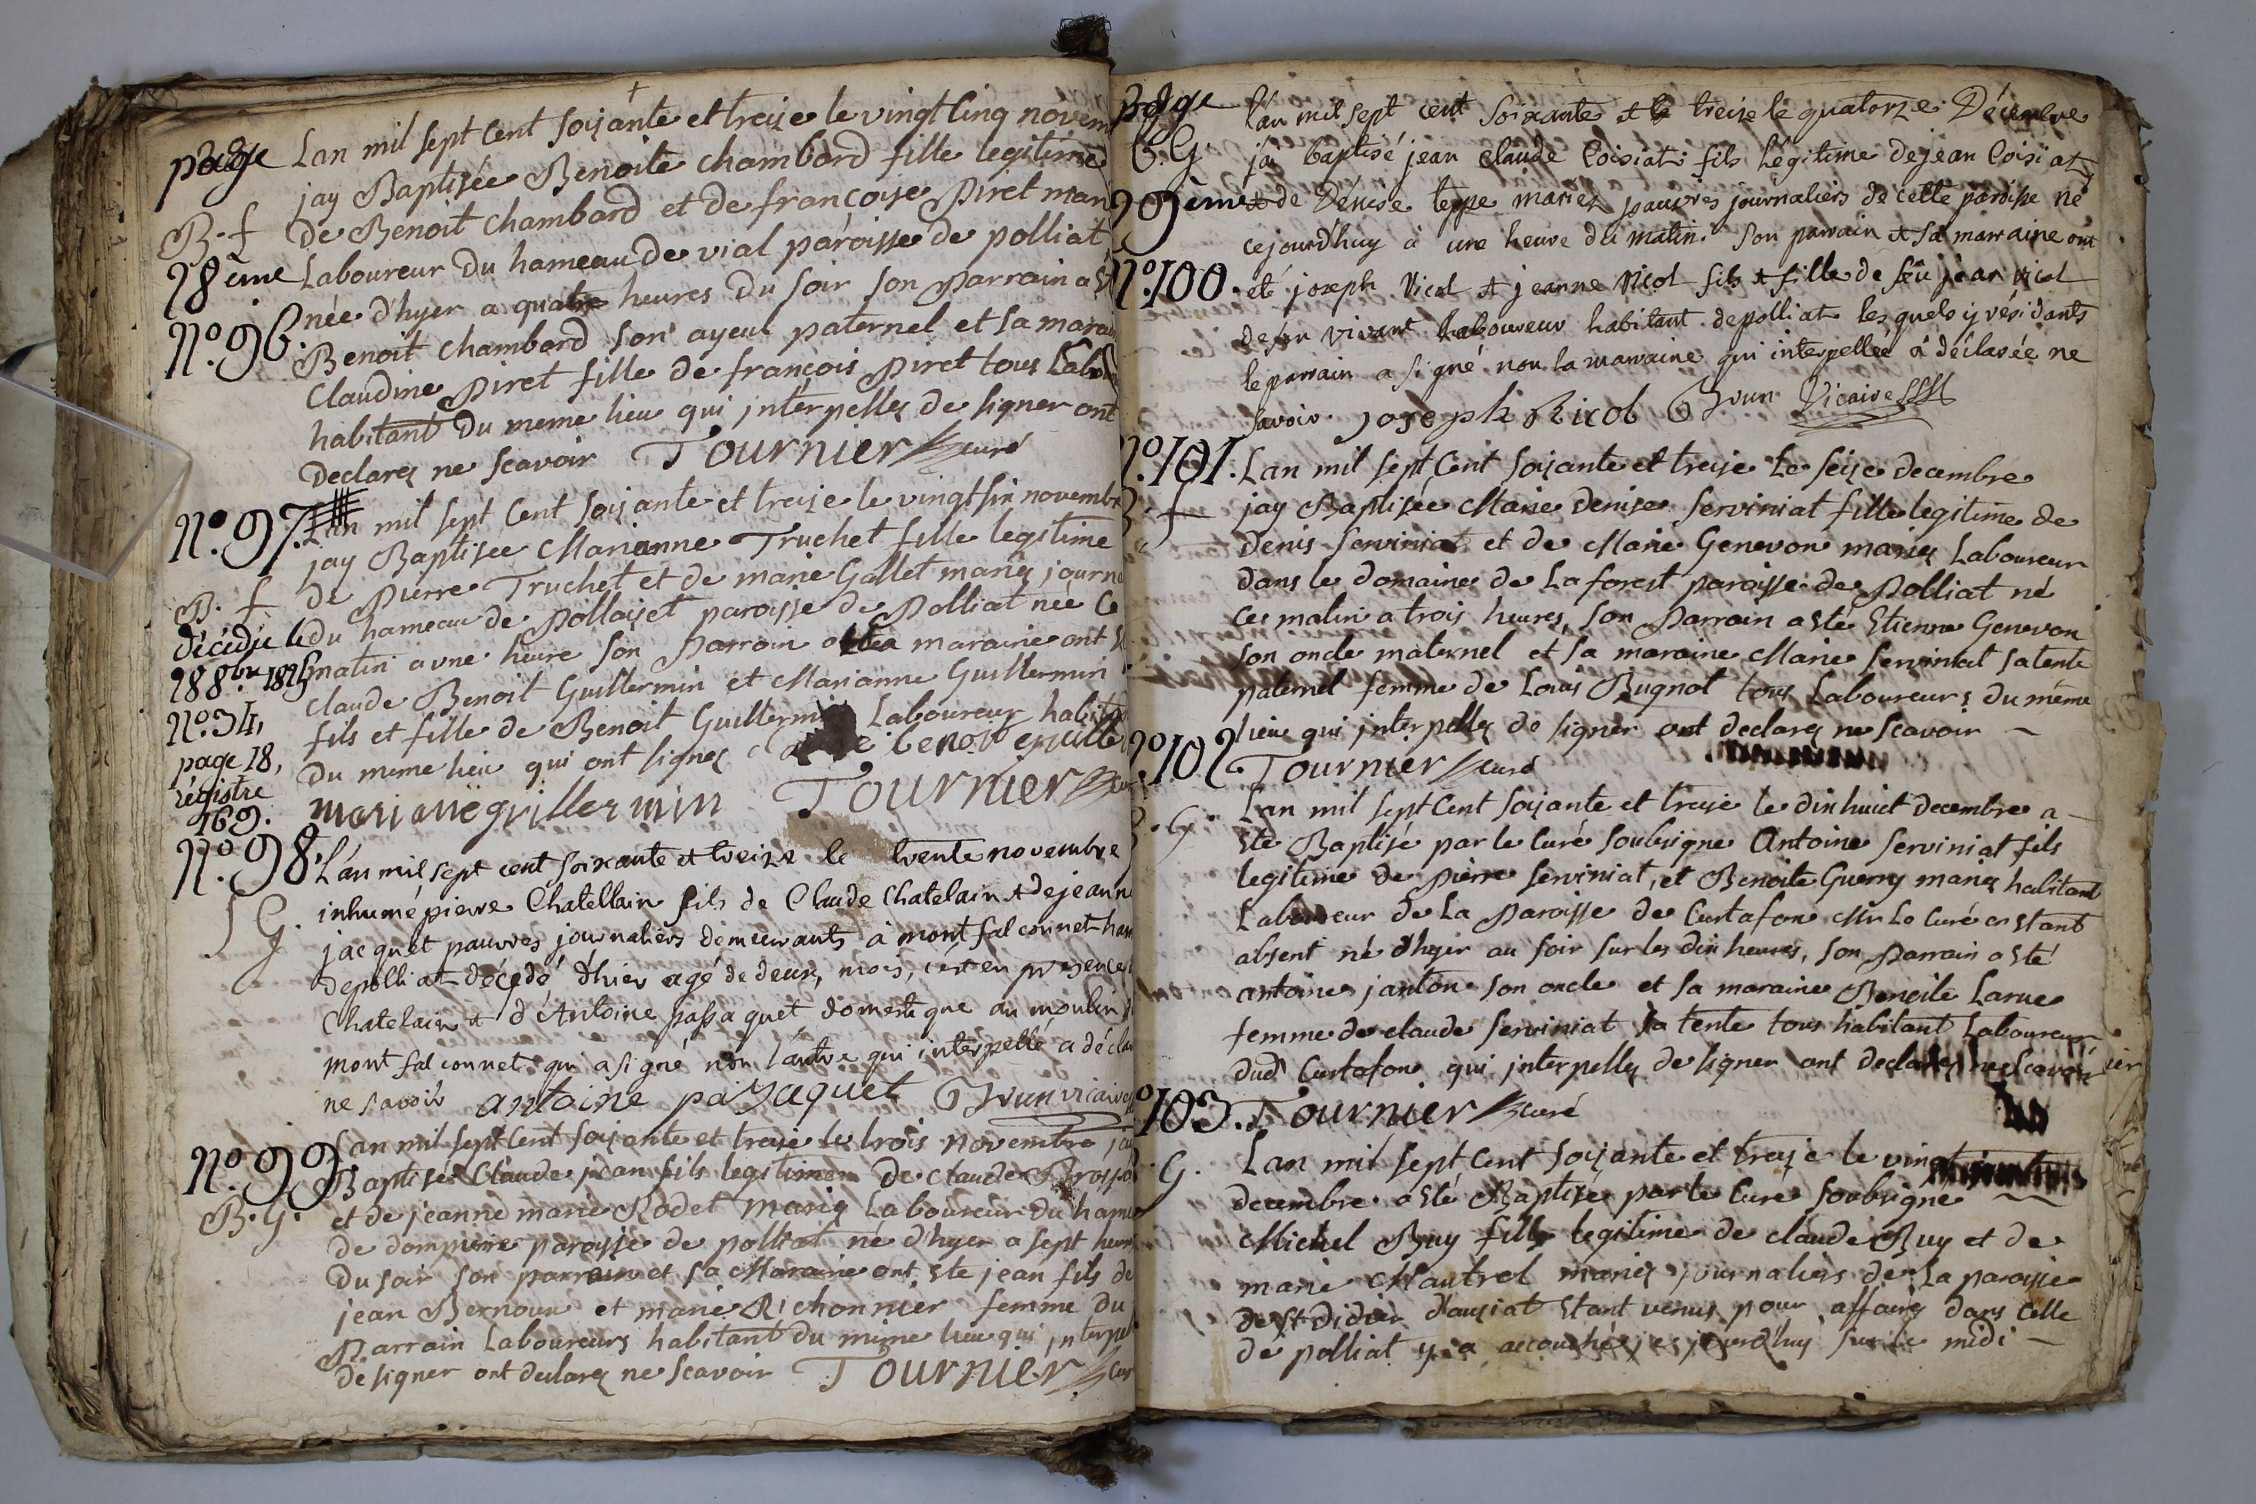 page
B. f
28ème
N°. 96.
Lan mil sept Cent soixante et treize le vingt Cinq novem
jay Baptizée Benoite Chambard fille legitime
de Benoit Chambard et de françoise Piret mari
Laboureur Du hameau de vial paroisse de polliat
née d'hyer a quatre heures du soir son Parrain a
Benoit Chambard son ayeul paternel et sa marai
Claudine Piret fille de françois Piret tous
habitant Du meme lieu qui interpellez de signer ont
Declarez ne scavoir Tournier curé
N°. 97.
B. f
décédée le
28 8bre 1825
N°. 34,
page 18,
régistre
169.
Lan mil sept Cent soixante et treize le vingt six novembre
jay Baptizee Marianne Truchet fille legitime
de Pierre Truchet et de marie Gallet mariez journa
du hameau de Pollaiset paroisse de Polliat née Ce
matin a une heure son Parrain et sa maraine ont
Claude Benoit Guillermin et Marianne Guillermin
fils et fille de Benoit Guillermin Laboureur habit
Du meme lieu qui ont signez benoit guille
marianne guillermin Tournier
N°. 98.
S G.
L'an mil sept cent soixante et treize le trente novembre
inhumé pierre Chatellain fils de Claude Chatelain & de jeanne
jacquet pauvres journaliers demeurants à montfalconnet ham
de polliat décédé d'hier agé de deux mois, c'est en présence
Chatelain & d'Antoine passaquet domestique au moulin
montfalconnet qui a signé non l'autre qui interpellé a décla
ne savoir antoine pasaquet Brun vicaire
N°. 99.
B. G.
Lan mil sept Cent soixante et treize le trois novembre jai
Baptisé Claude jean fils legitime de Claude
et de jeanne marie Rodet mariez Laboureur du hame
de dompierre paroisse de polliat né d'hyer a sept heur
Du soir son parrain et sa Maraine ont este jean fils de
jean Bernoux et marie Richonnier femme du
Parrain Laboureurs habitant du même lieu qui interpel
de signer ont declarez ne scavoir Tournier
page
B. G.
29ème
N°. 100.
L'an mil sept cent soixante et treize le quatorze Décembre
jai baptisé jean claude Coisiat fils légitime de jean Coisiat
& de Dénise teppe mariez pauvres journaliers de cette paroisse né
cejourd'huy à une heure du matin. Son parrain & sa marraine ont
eté joseph Nicol & jeanne Nicol fils & fille de feu jean Nicol
de son vivant laboureur habitant de polliat lesquels y résidants
le parrain a signé non la marraine qui interpellée a déclarée ne
savoir joseph Nicol Brun Vicaire
N°. 101.
B. f
Lan mil sept Cent soixante et treize Le seize decembre
jay Baptisée Marie Denise serviniat fille legitime de
Denis serviniat et de Marie Genevon mariez Laboureur
dans le domaine de La forest paroisse de Polliat né
Ce matin a trois heures, son Parrain a este Etienne Genevon
son oncle maternel et sa maraine Marie serviniat sa tente
paternel femme de Louis Bugnot tous Laboureurs du même
lieu qui interpellez de signer ont declarez ne scavoir
N°. 102.
Tournier curé
B. G.
Lan mil sept Cent soixante et treize le dix huict decembre a
Esté Baptisé par le Curé soubsigne Antoine serviniat fils
legitime de pierre serviniat, et Benoite Guerry mariez habitant
Laboureur de La Paroisse de Curtafon Mr Le Curé en Etant
absent né d'hyer au soir sur les dix heures, son Parrain a esté
antoine janton son oncle et sa maraine Benoite Larue
femme de claude serviniat sa tente tous habitant Laboureur
dud Curtafon qui interpellez de signer ont declarez ne scavoir
N°. 103.
Tournier curé
G.
Lan mil sept Cent soixante et treize le vingt
decembre a esté Baptisé par le Curé soubsigne
Michel Buy fils legitime de claude Buy et de
marie Mautrel mariez journaliers de La paroisse
de st didier d'ausiat Etant venus pour affaires dans Celle
de polliat y a accouchée cejourd'huy sur le midi